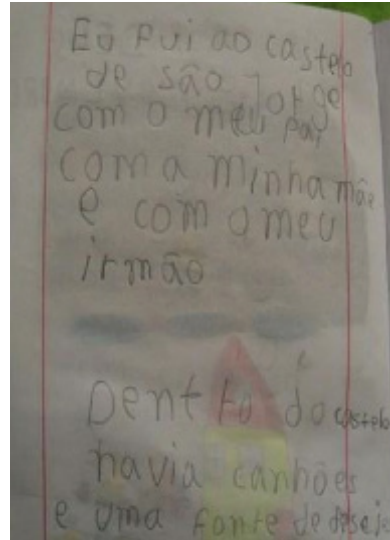 Eu fui ao castelo
de são Jorge
com o meu pai
com a minha mãe
e com o meu
irmão
Dentro do castelo
havia canhões
e uma fonte de desejo